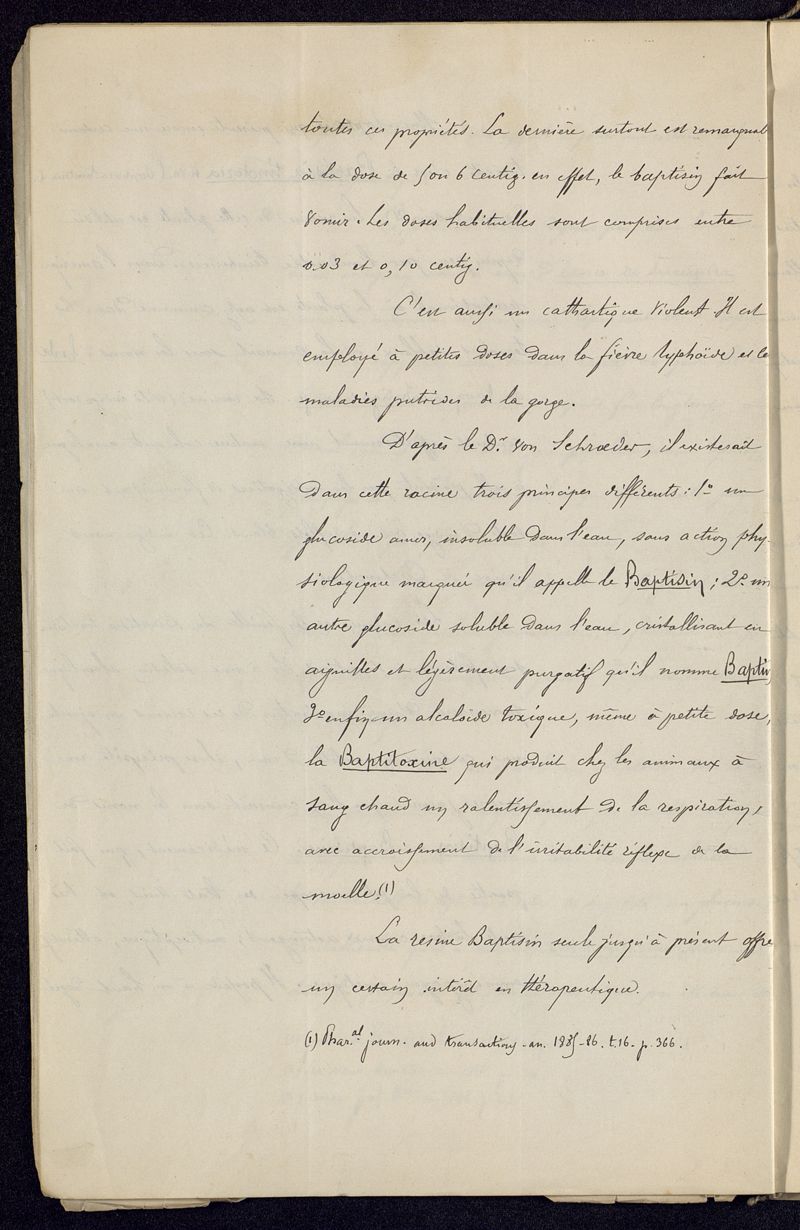 toutes ces propriétés. La dernière surtout est remarquab
à la dose de 5 ou 6 centig. en effet, le baptisin fait
vomir. Les doses habituelles sont comprises entre
0.03 et 0,10 centig.
C'est aussi un cathartique violent. Il est
employé à petites doses dans la fièvre typhoïde et le
maladies putrides de la gorge.
D'après le Dr. von Schrœder, il existerait
dans cette racine trois principes différents : 1º un
glucoside amer, insoluble dans l'eau, sans action phy-
siologique marquée qu'il appelle le Baptisin ; 2º un
autre glucoside soluble dans l'eau, cristallisant en
aiguilles et légèrement purgatif qu'il nomme Baptin
3º enfin un alcaloïde toxique, même à petite dose,
la Baptitoxine qui produit chez les animaux à
sang chaud un ralentissement de la respiration,
avec accroissement de l'irritabilité réflexe de la
moelle. (1)
La resine Baptisin seule jusqu'à présent offre
un certain intérêt en thérapeutique.
(1) Phar.al journ. and transactions - an. 1885-86. t.16. p. 366.